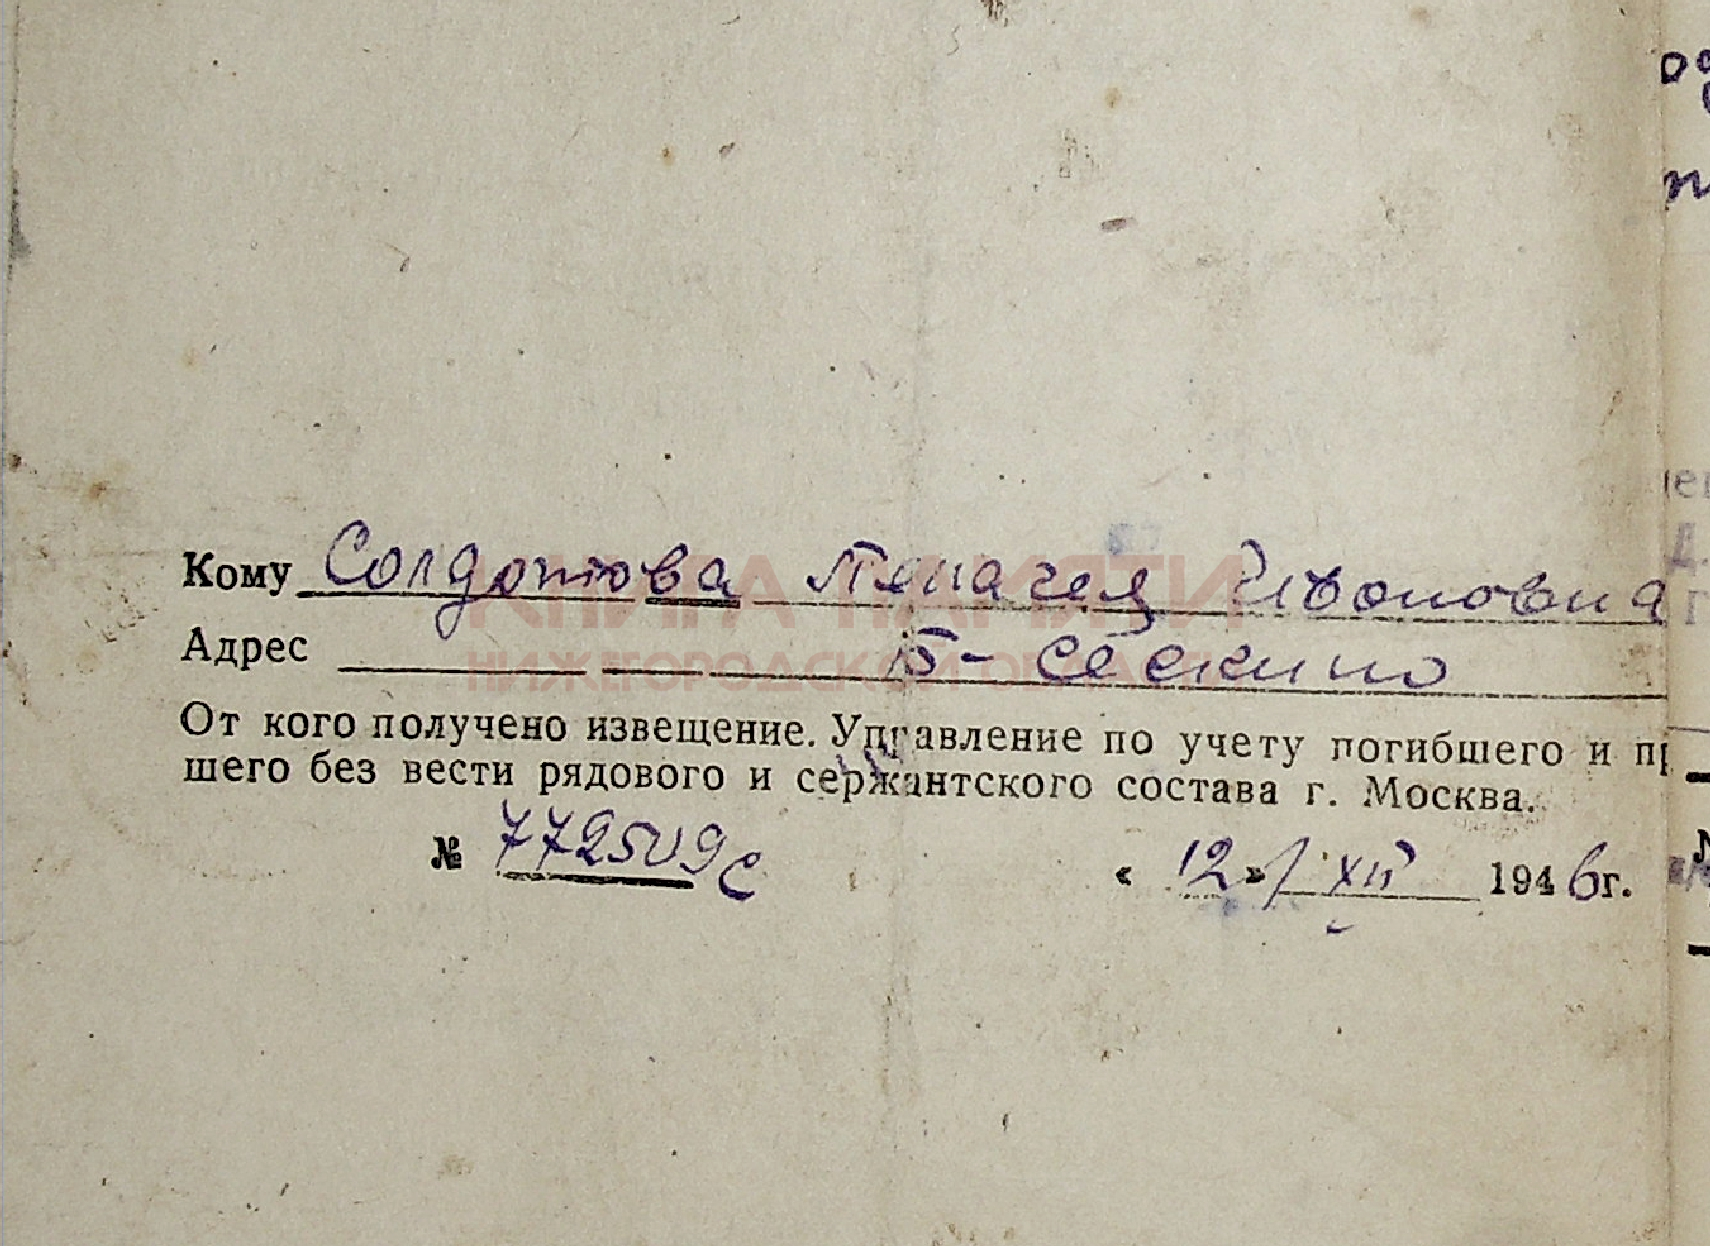 Кому Солдатова Пелагея Ивановна
Адрес Б-Сескино
От кого получено извещение. Управление по учету погибшего и пр
шего без вести рядового и сержантского состава г. Москва.
№ 772509с « 12 » XII 1946 г.
КНИГА ПАМЯТИ
НИЖЕГОРОДСКОЙ ОБЛАСТИ